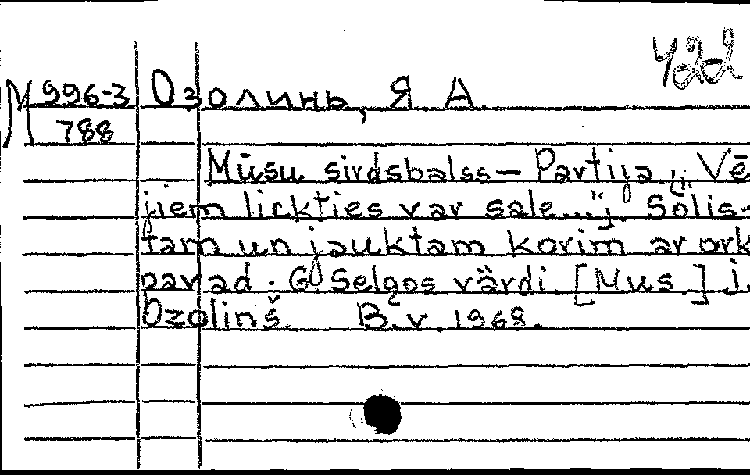 422
М 996-3 Озолинь, Я. А.
788
Mūsu sirdsbalss – Partija „Vē
jiem lickties var sale...“; Sōlis-
tam un jauktam korim ar ork
pavad. G. Selgos värdi. [Mus.] J.
Ozolinš B. v. 1968.